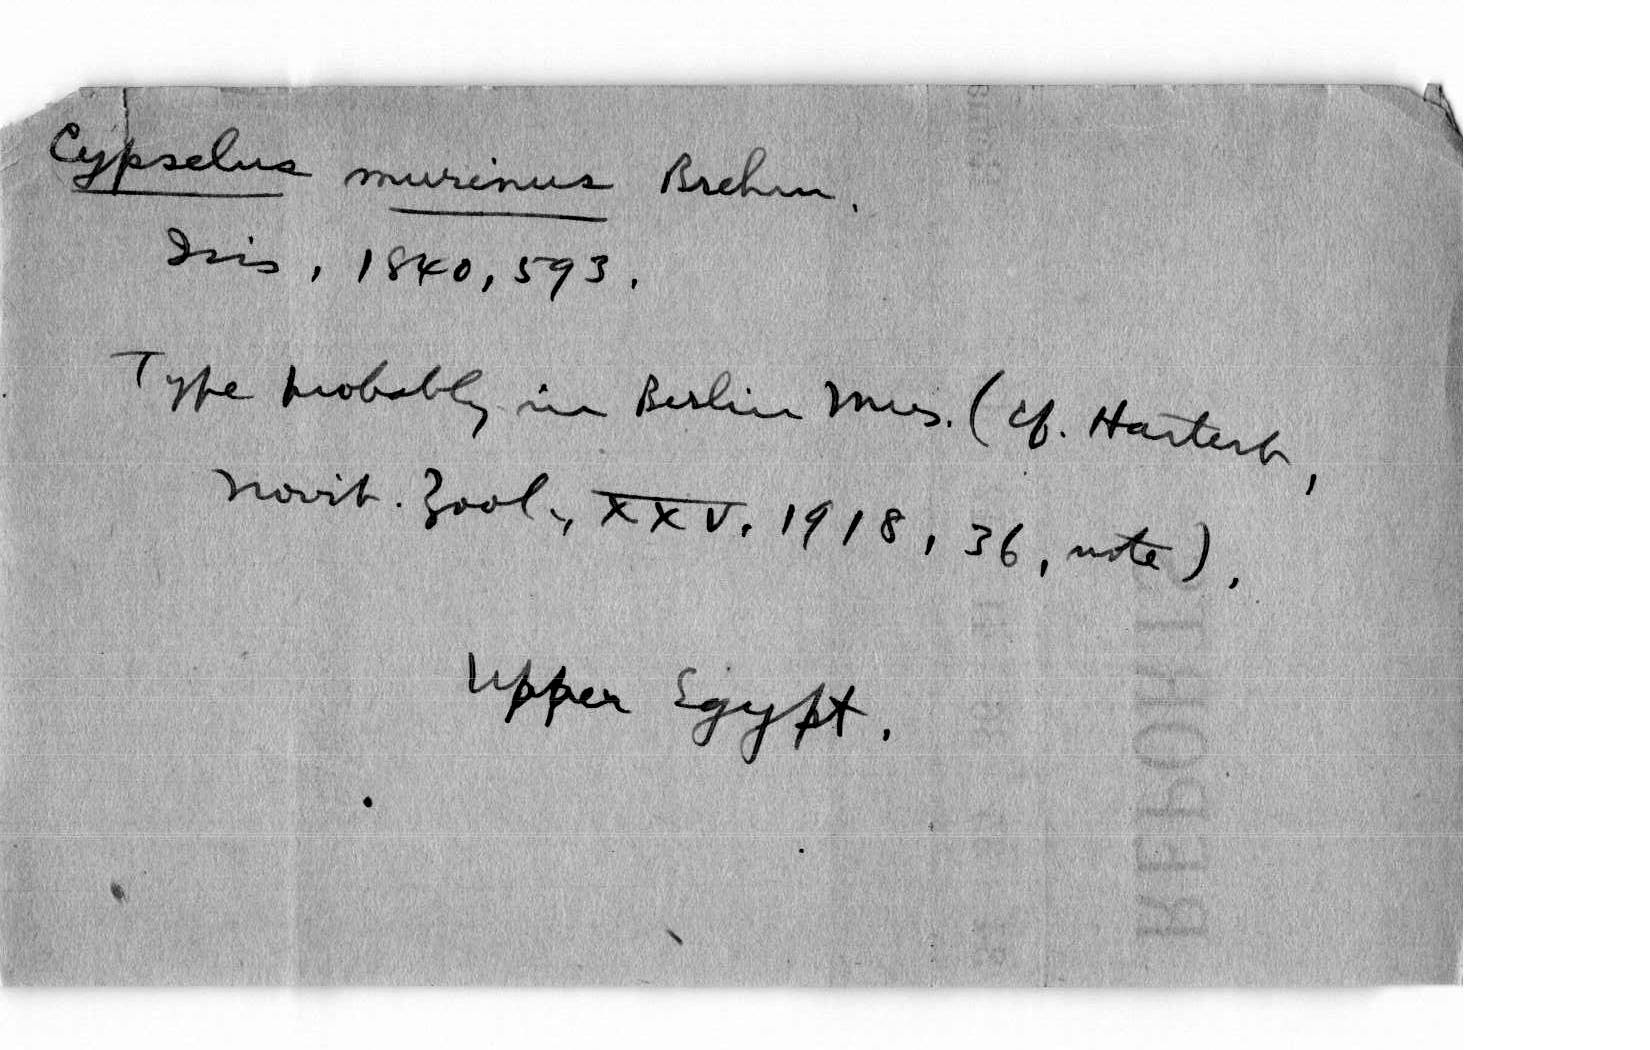 Cypselus murinus Brehm.
Isis, 1840, 593.
Type probably in Berlin Mus. (cf. Hartert,
Novit. Zool., XXV, 1918, 36, note).
Upper Egypt.
REPORT